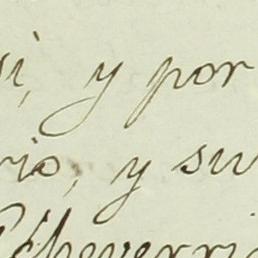 si, y por
rio, y su
Echeverri